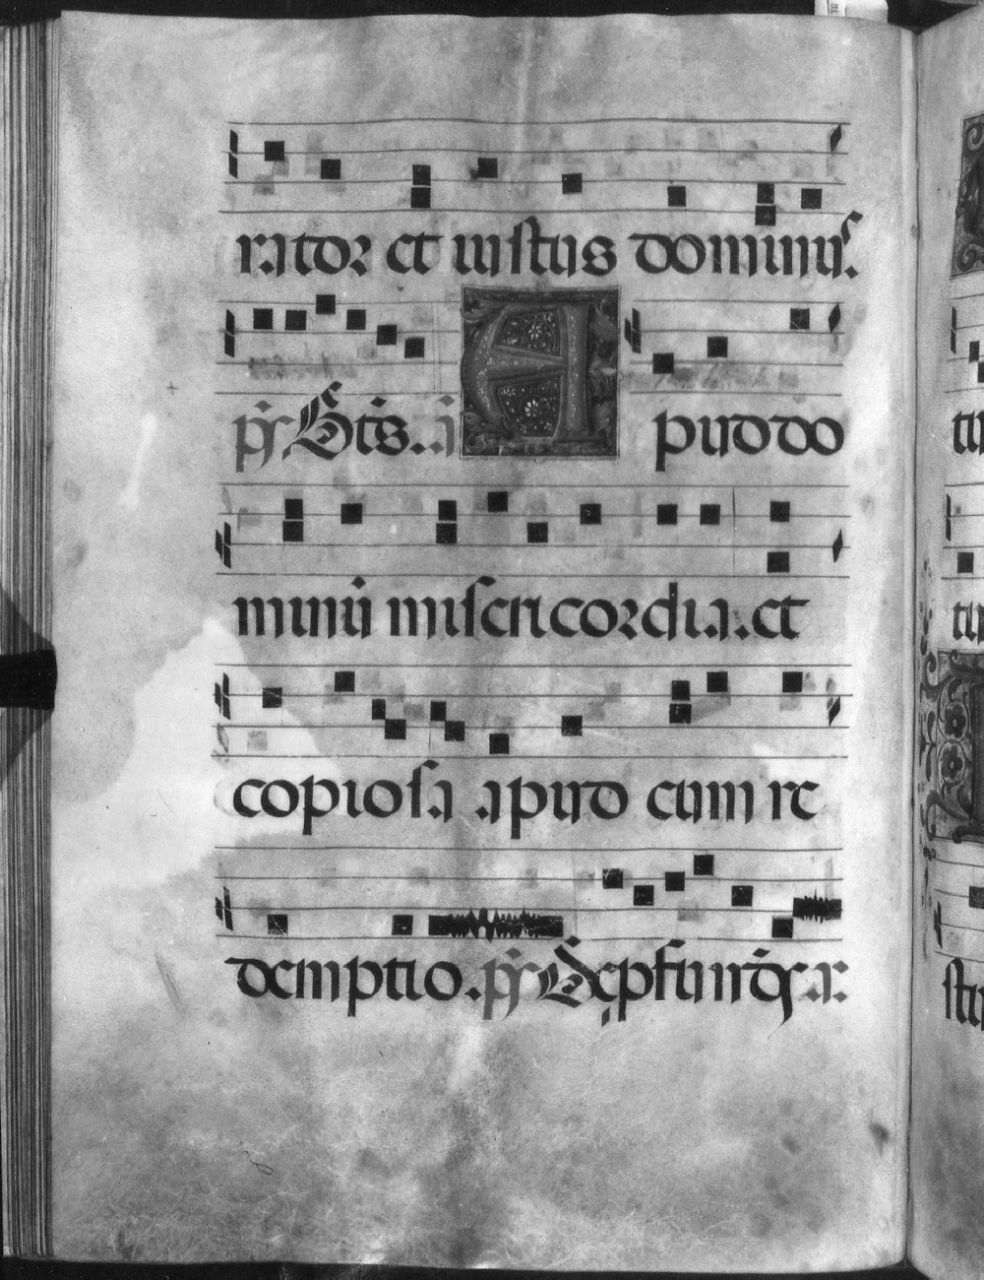 rator et iustus dominus.
p̄s Btı̄s. ā Apud do
mini misericordia. et
copiosa apud eum re
demptio. p̄s De ꝓfundis a.